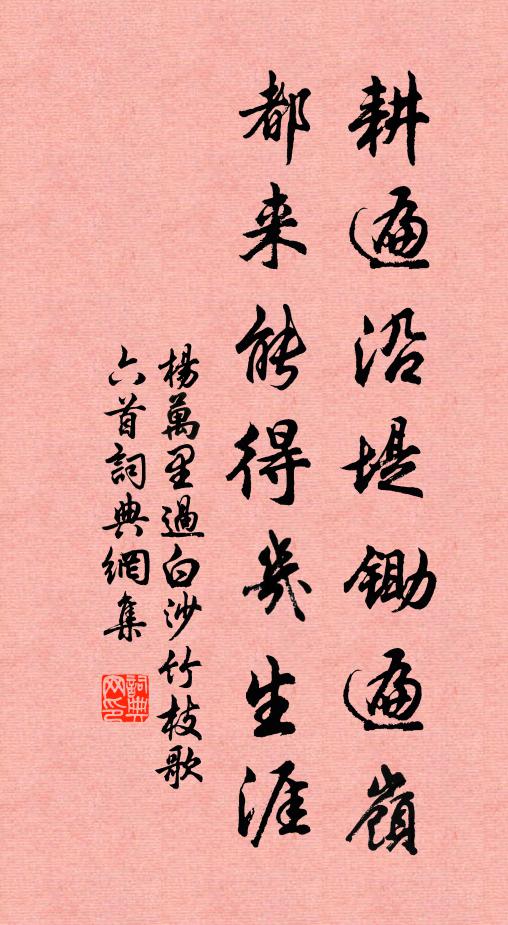 耕遍沿堤锄遍嶺
都来能得幾生涯
楊萬里過白沙竹枝歌
六首詞典網集
詞典
网印